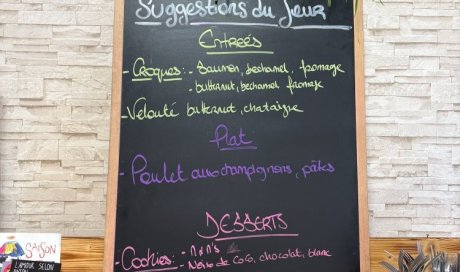 Suggestions du Jour
Entrées
- Croques: - Saumon, bechamel, fromage
- butternut, bechamel fromage
- Velouté butternut, chataigne
Plat
- Poulet aux champignons, pâtes
DESSERTS
- Cookies: - M & M's
- Noix de Coco, chocolat, blanc
SAISON
L'AMOUR SELON